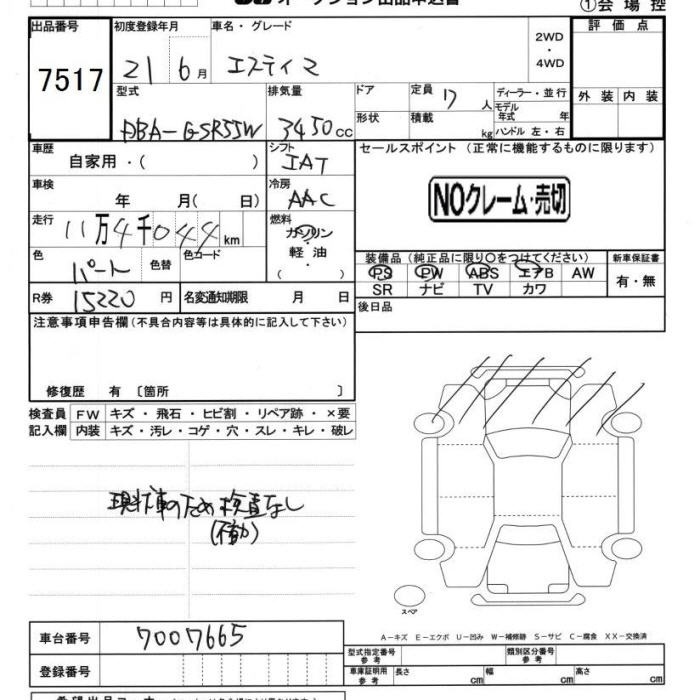 ①会場控
出品番号 初度登録年月 車名・グレード 2WD・4WD 評価点
7517 21 6月 エスティマ
外装 内装
型式 排気量 ドア 定員 7人 ディーラー・並行
DBA-GSR55W 3450cc 形状 積載 kg モデル年式 年 ハンドル 左・右
車歴 自家用・( ) シフト IAT セールスポイント (正常に機能するものに限ります)
車検 年 月( 日) 冷房 AAC
NOクレーム・売切
走行 11万4千044km 燃料 ガソリン 軽油 ・( )
色 パール 色替 色コード
装備品(純正品に限り○をつけてください) 新車保証書
PS PW ABS エアB AW 有・無
SR ナビ TV カワ
R券 15220円 名変通知期限 月 日 後日品
注意事項申告欄(不具合内容等は具体的に記入して下さい)
修復歴 有 〔箇所 〕
検査員 FW キズ・飛石・ヒビ割・リペア跡・×要
記入欄 内装 キズ・汚レ・コゲ・穴・スレ・キレ・破レ
現状車のため検査なし
(不動)
スペア
A-キズ E-エクボ U-凹み W-補修跡 S-サビ C-腐食 XX-交換済
車台番号 7007665
型式指定番号 類別区分番号
登録番号 車庫証明用参考 長さ cm 幅 cm 高さ cm